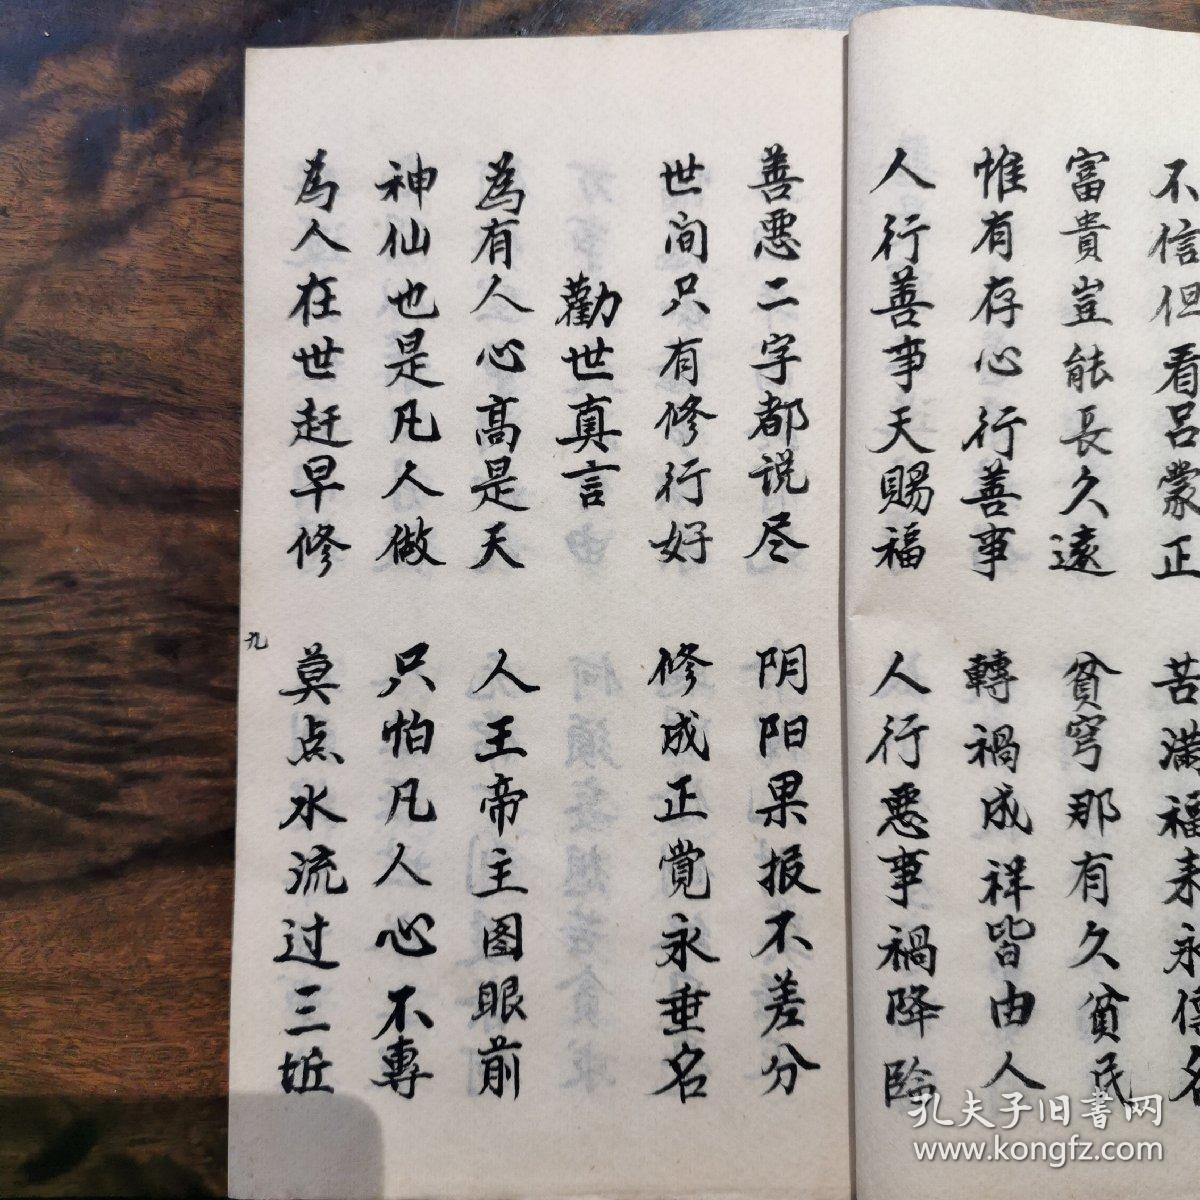 不信但看吕蒙正 苦满福来永传名
富貴豈能長久遠 貧穹那有久貧民
惟有存心行善事 轉禍成祥皆由人
人行善事天賜福 人行悪事禍降臨
善悪二字都说尽 阴阳果报不差分
世间只有修行好 修成正覺永垂名
勸世真言
為有人心高是天 人王帝主图眼前
神仙也是凡人做 只怕凡人心不專
為人在世赶早修 莫点水流过三坵
九
孔夫子旧书网
www.kongfz.com